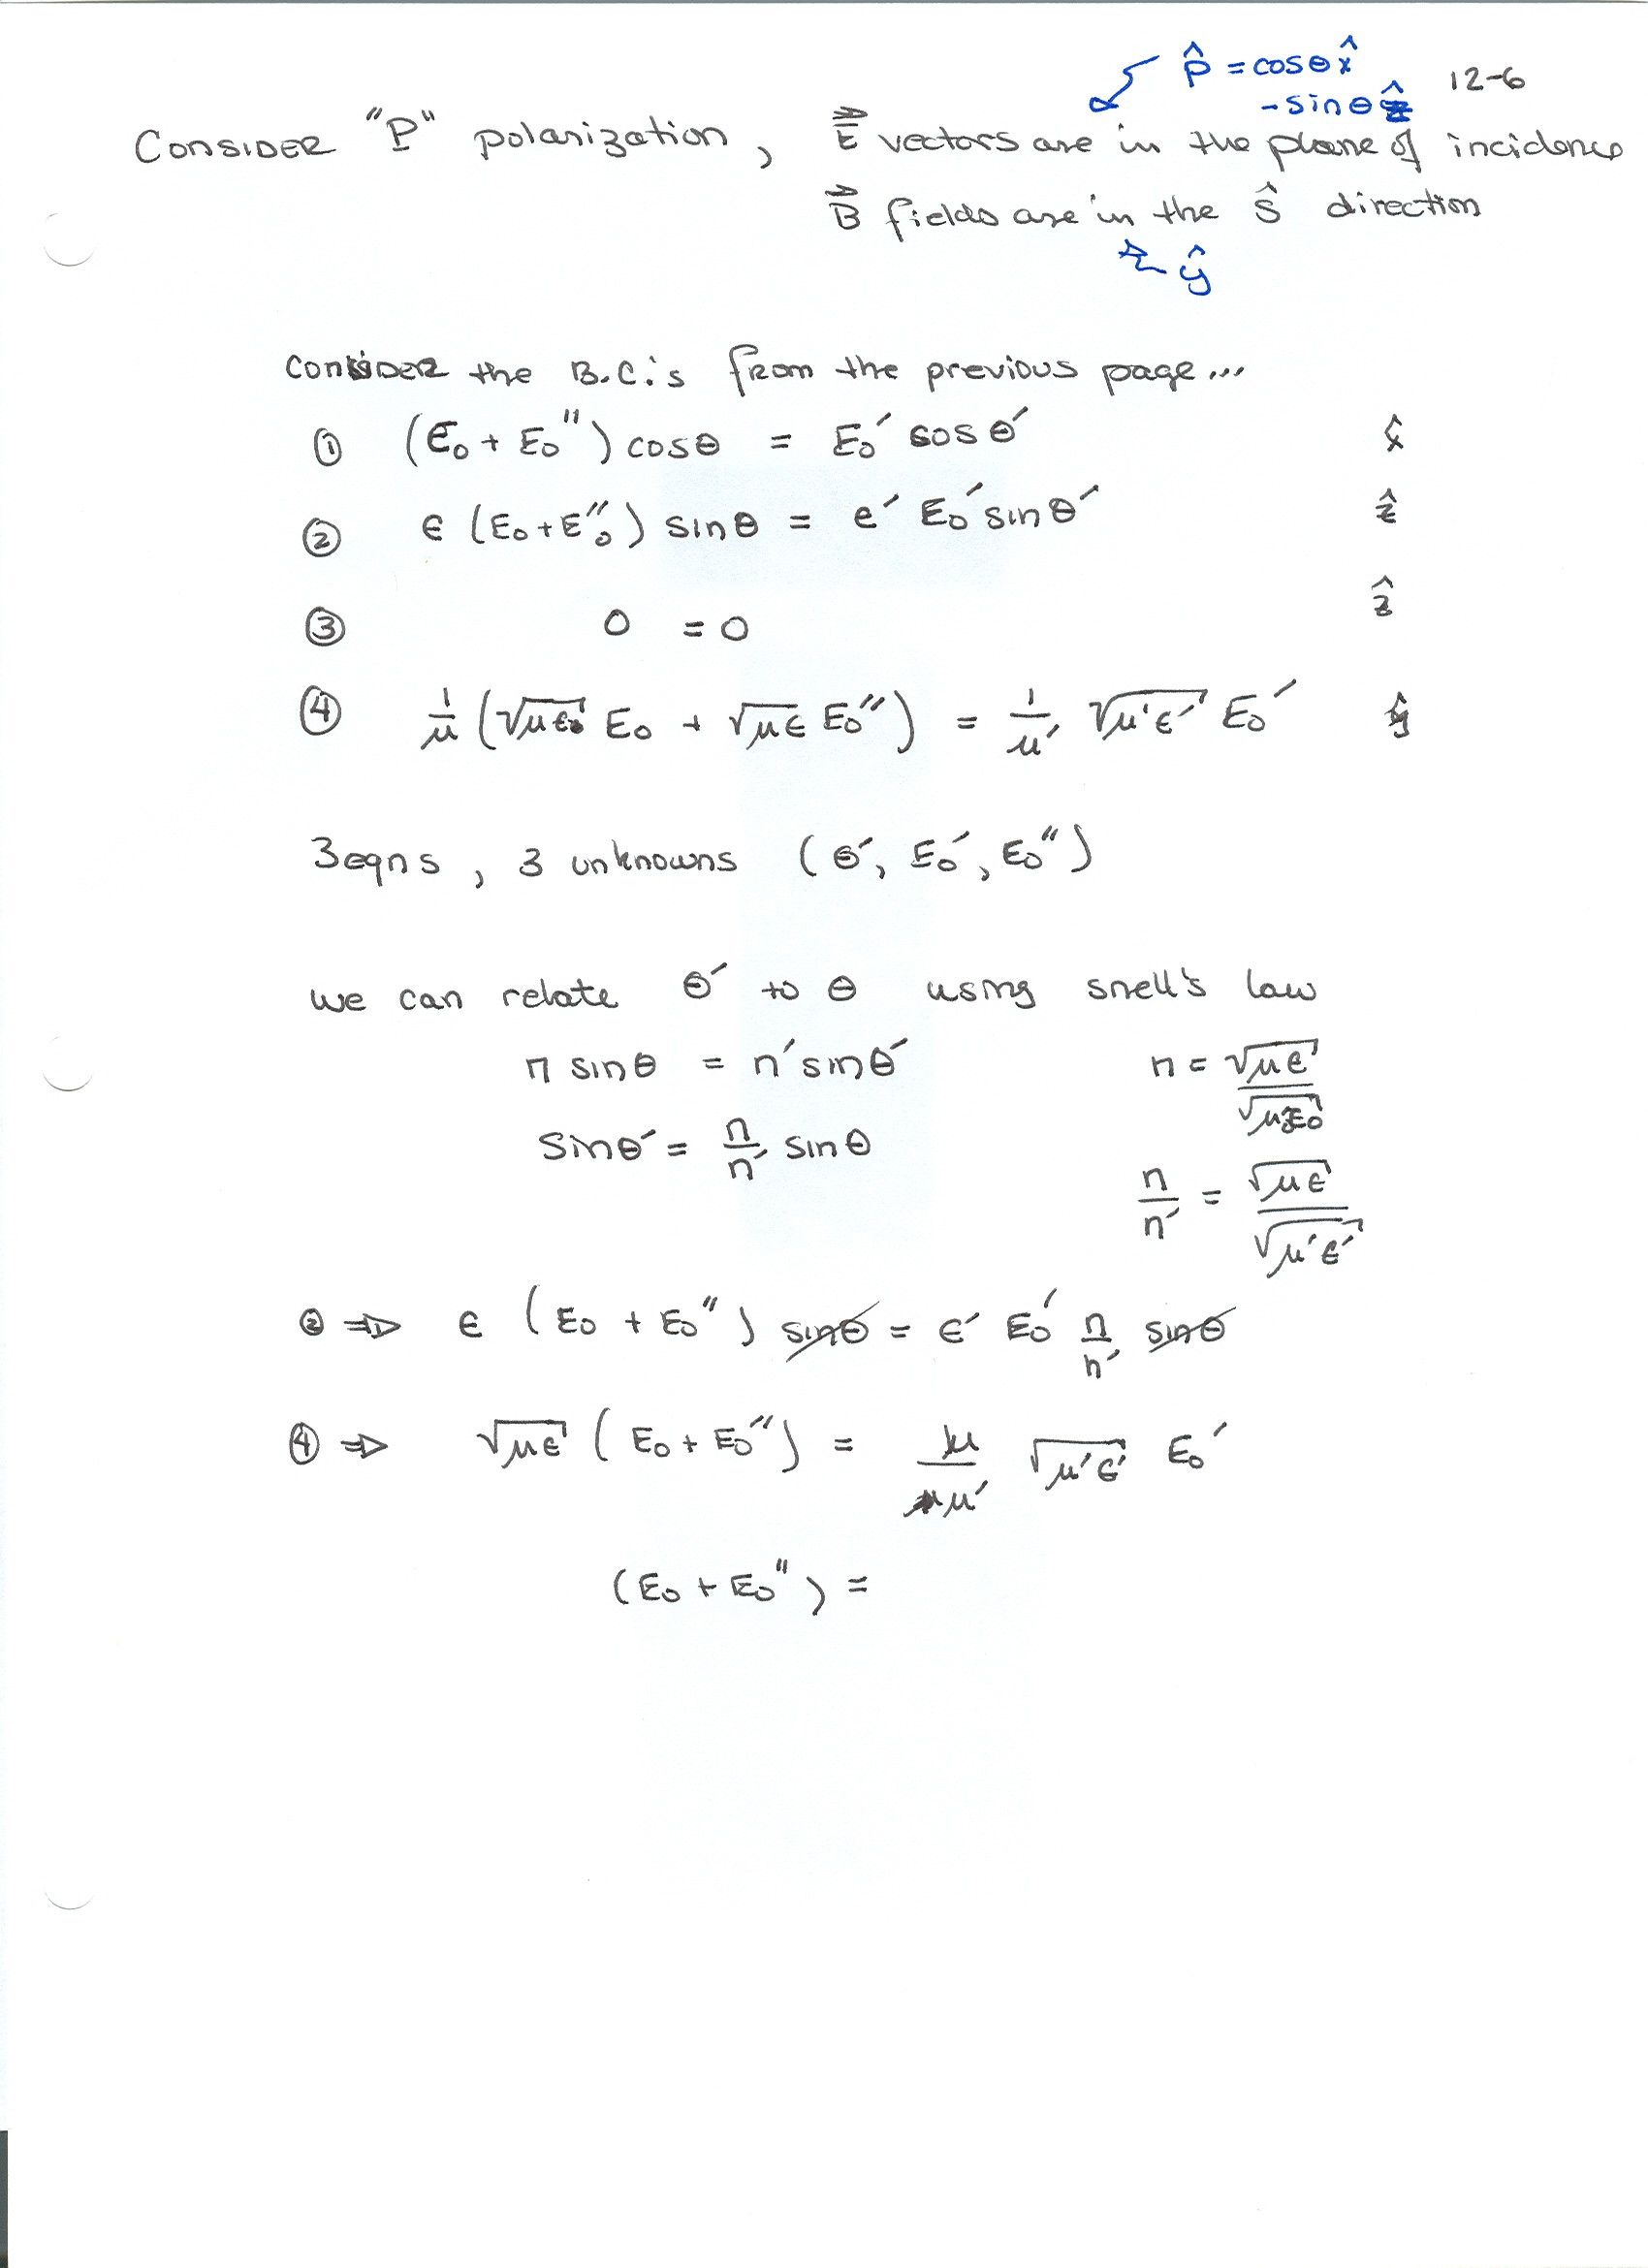 p̂ = cosθ x̂
12-6
- sinθ ẑ
CONSIDER "P" polarization, E⃗ vectors are in the plane of incidence
B⃗ fields are in the ŝ direction
ŷ
CONSIDER the B.C.'s from the previous page...
① (E₀ + E₀'') cosθ = E₀' cosθ' x̂
② ϵ (E₀ + E₀'') sinθ = ϵ' E₀' sinθ' ẑ
③ 0 = 0 ẑ
④ 1/μ (√μϵ E₀ + √μϵ E₀'') = 1/μ' √μ'ϵ' E₀' ŷ
3 eqns, 3 unknowns (θ', E₀', E₀'')
we can relate θ' to θ using snell's law
n sinθ = n' sinθ' n = √μϵ / √μ₀ϵ₀
sinθ' = n/n' sinθ
n/n' = √μϵ / √μ'ϵ'
② ⇒ ϵ (E₀ + E₀'') sinθ = ϵ' E₀' n/n' sinθ
④ ⇒ √μϵ (E₀ + E₀'') = μ/μ' √μ'ϵ' E₀'
(E₀ + E₀'') =